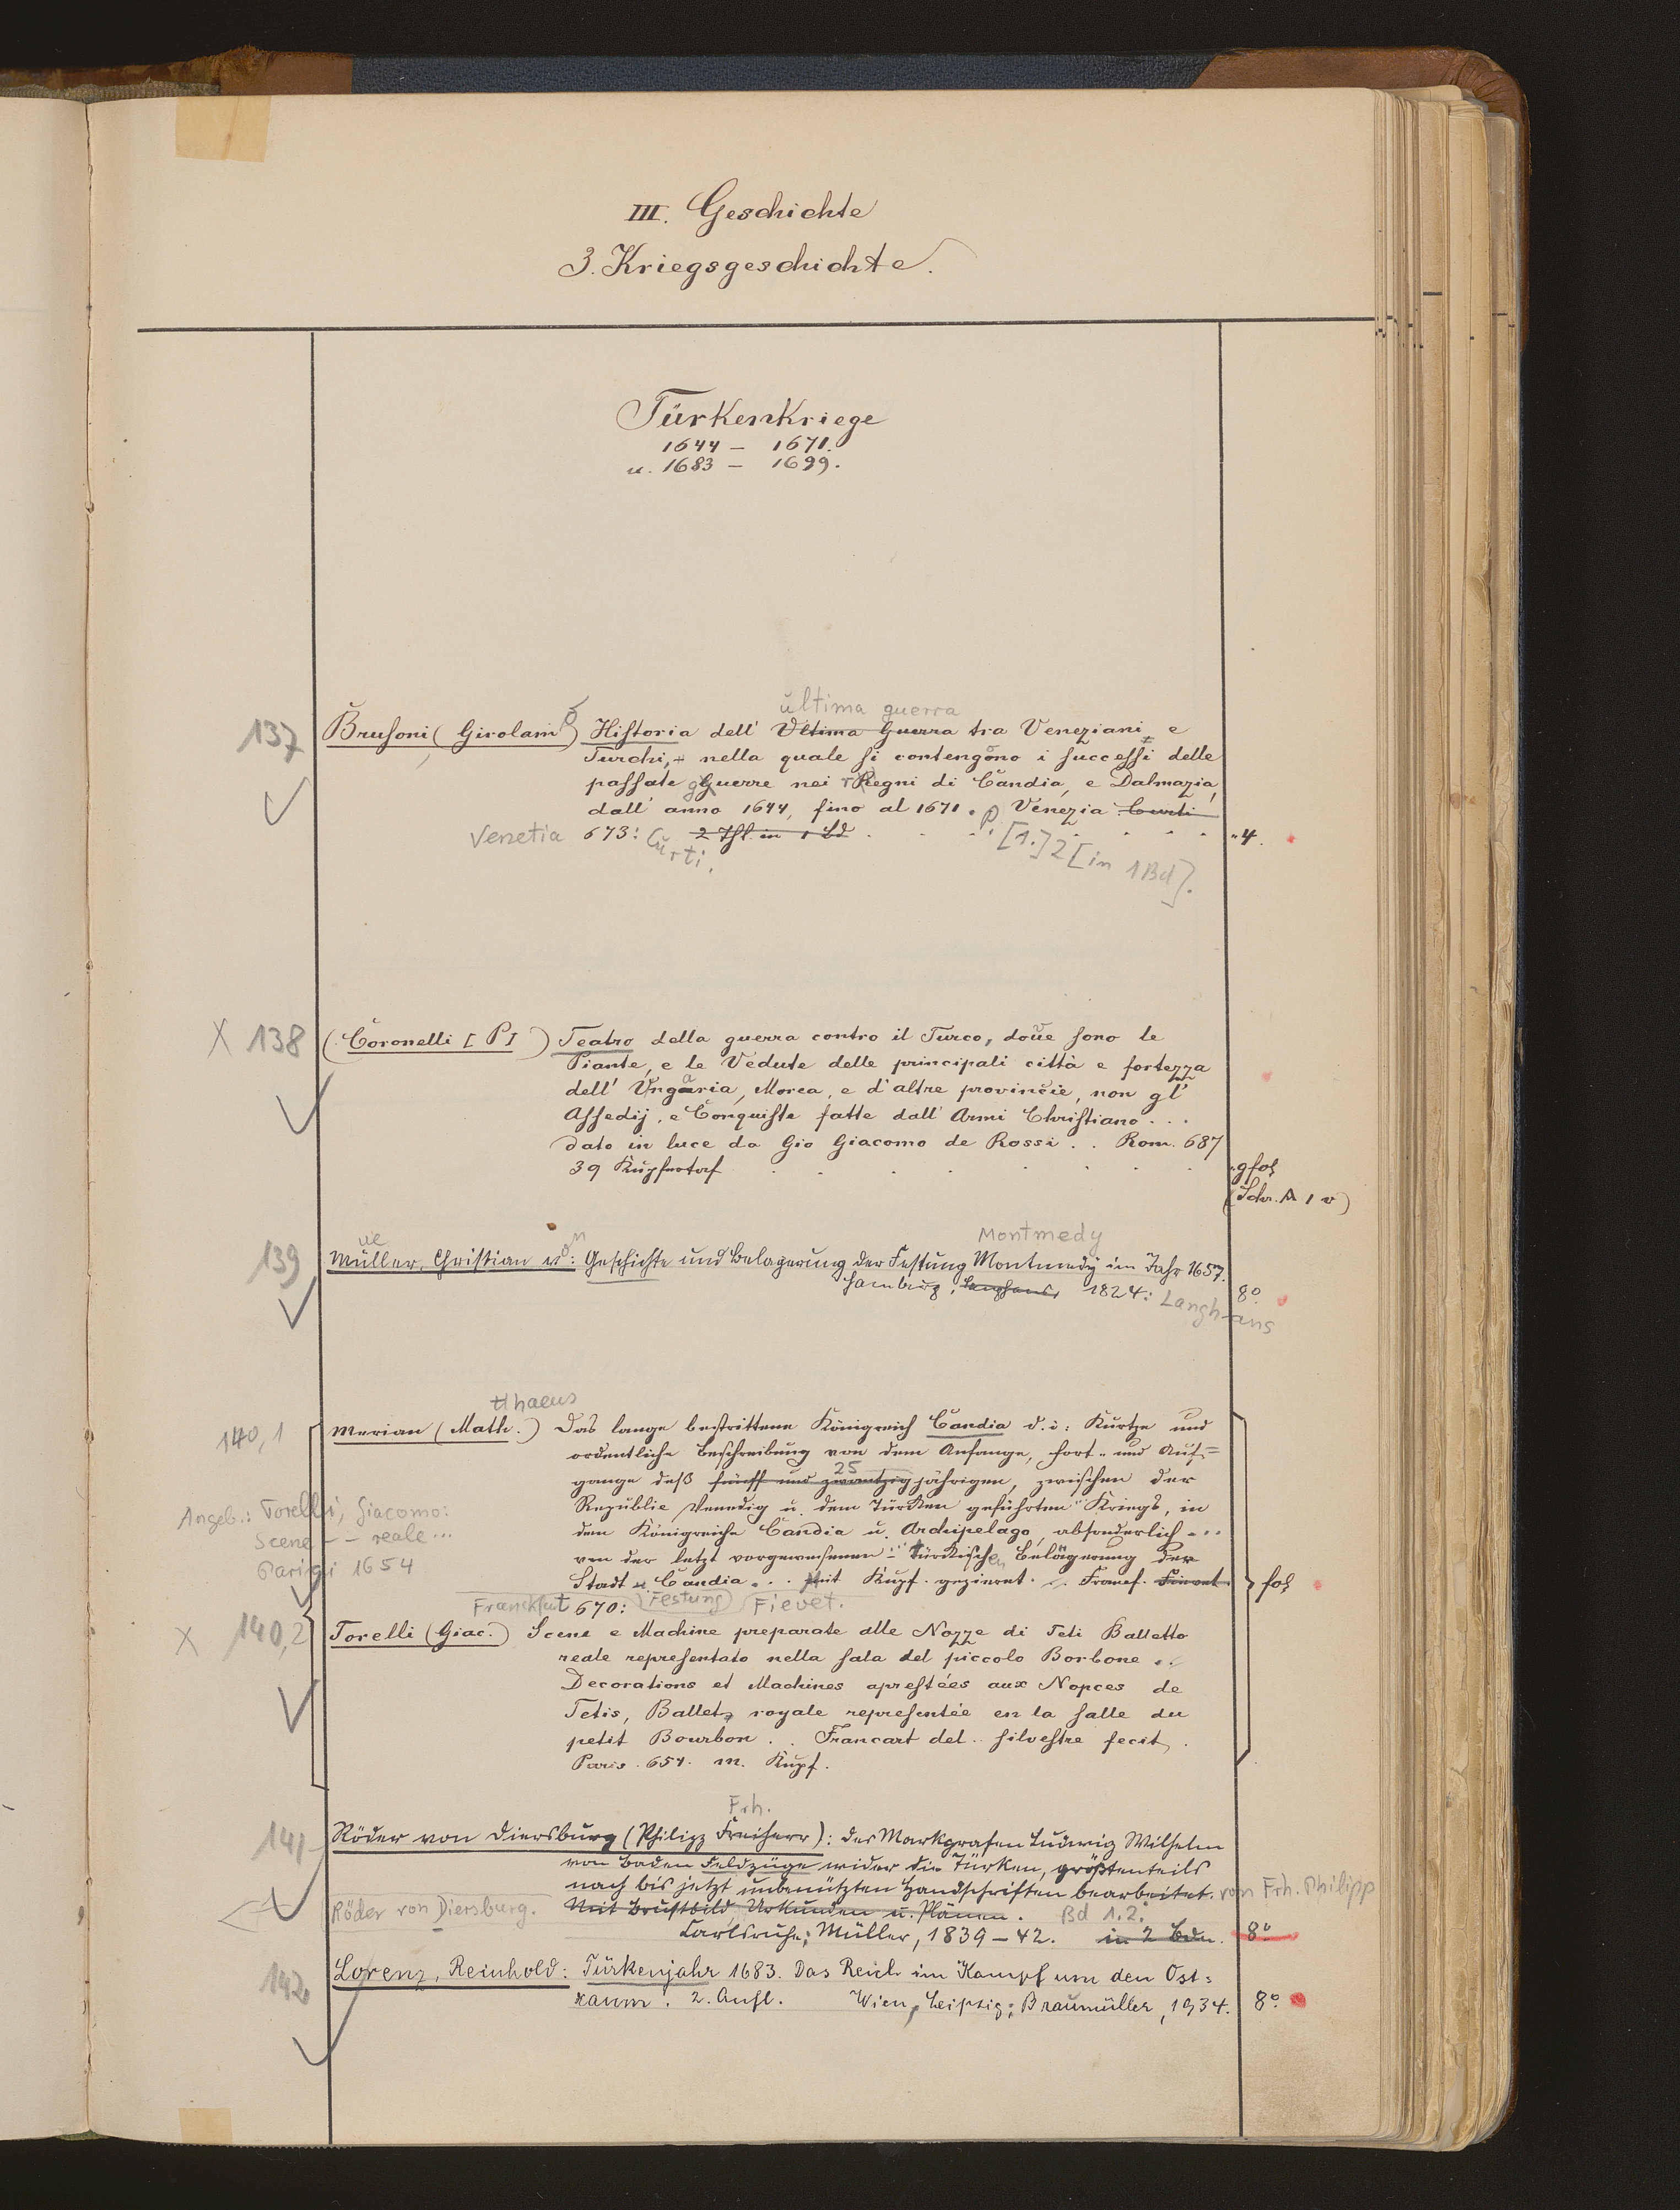 III. Geschichte
3. Kriegsgeschichte.
Türkenkriege
1644 – 1671.
u. 1683 – 1699.
ultima guerra
137 Brusoni (Girolamo) Historia dell' Vltima Guerra tra Veneziani e
Turchi, nella quale si contengono i successi delle
passate Guerre nei Regni di Candia, e Dalmazia,
dall' anno 1644, fino al 1671. Venezia Curti
Venetia 673: Curti. 2 Thl. in 1 Bd . . . P. [1.] 2 [in 1 Bd]. 4.
X 138 (Coronelli [P]) Teatro della guerra contro il Turco, doue sono le
Piante, e le Vedute delle principali città e fortezza
dell' Ungaria, Morea, e d'altre provincie, non gl'
Assedij, e Conquiste fatte dall' Armi Christiano . . .
dato in luce da Gio Giacomo de Rossi . . Rom. 687
39 Kupfertaf . . . . . . gfol
(Schr. A 1 v)
Montmedy
139 Müller, Christian von: Geschichte und Belagerung der Festung Montmedy im Jahr 1657.
Hamburg, Langhans, 1824: Langhans 8°
tthaeus
140,1 Merian (Math.) Das lange bestrittene Königreich Candia d. i: Kurtze und
ordentliche Beschreibung von dem Anfange, fort- und Auß=
25
gange deß fünff und zwantzig jährigen, zwischen der
Republic Venedig u. dem Türcken geführten Kriegs, in
Angeb.: Torelli, Giacomo:
dem Königreiche Candia u. Archipelago, absonderlich ...
Scene – – reale ...
von der letzt vorgewesenen Türckischen Belägerung der
Parigi 1654
Stadt u. Candia . . . Mit Kupf. gezieret . . Francf. Fievet fol
Franckfurt 670: Festung Fievet.
X 140,2 Torelli (Giac.) Scene e Machine preparate alle Nozze di Teti Balletto
reale representato nella sala del piccolo Borbone . .
Decorations et Machines aprestées aux Nopces de
Tetis, Ballet royale representée en la salle du
petit Bourbon . . Francart del. silvestre fecit.
Paris. 654. m. Kupf.
Frh.
141 Röder von Diersburg (Philipp Freiherr): des Markgrafen Ludwig Wilhelm
von Baden Feldzüge wider die Türken, größtenteils
nach bis jetzt unbenützten Handschriften bearbeitet. von Frh. Philipp
Röder von Diersburg. Mit Brustbild, Urkunden u. Plänen. Bd 1.2.
Carlsruhe: Müller, 1839–42. in 2 Bdn. 8°
142 Lorenz, Reinhold: Türkenjahr 1683. Das Reich im Kampf um den Ost=
raum. 2. Aufl. Wien, Leipzig: Braumüller, 1934. 8°